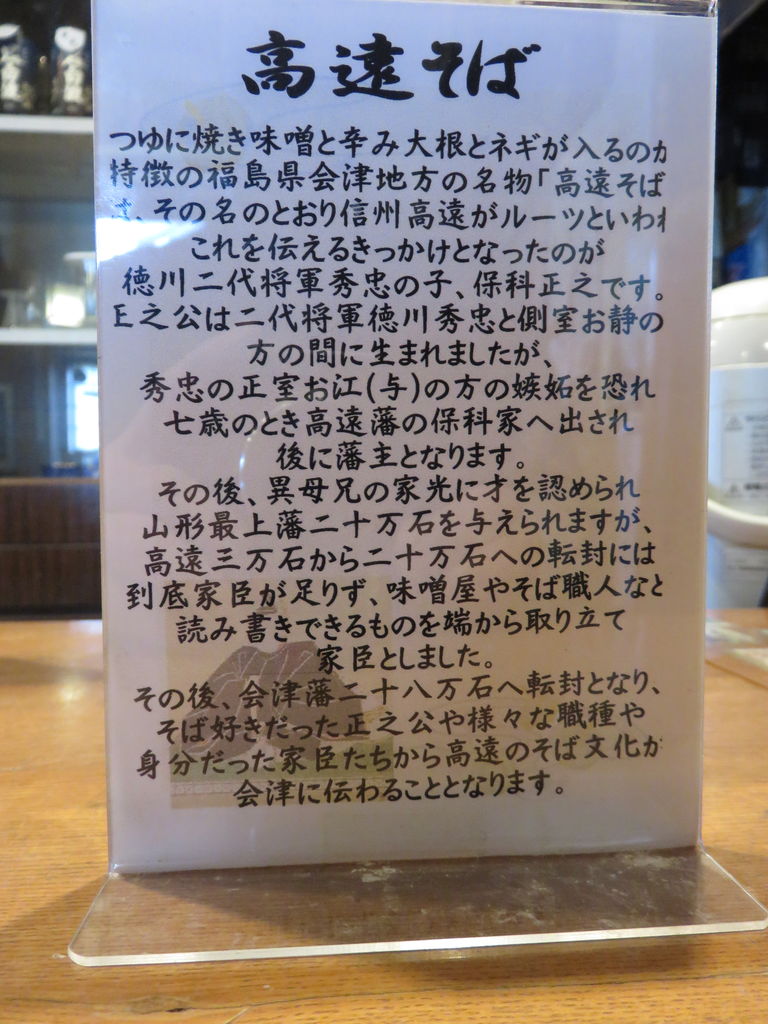 高遠そば
つゆに焼き味噌と辛み大根とネギが入るのが
特徴の福島県会津地方の名物「高遠そば
、その名のとおり信州高遠がルーツといわれ
これを伝えるきっかけとなったのが
徳川二代将軍秀忠の子、保科正之です。
正之公は二代将軍徳川秀忠と側室お静の
方の間に生まれましたが、
秀忠の正室お江(与)の方の嫉妬を恐れ
七歳のとき高遠藩の保科家へ出され
後に藩主となります。
その後、異母兄の家光に才を認められ
山形最上藩二十万石を与えられますが、
高遠三万石から二十万石への転封には
到底家臣が足りず、味噌屋やそば職人など
読み書きできるものを端から取り立て
家臣としました。
その後、会津藩二十八万石へ転封となり、
そば好きだった正之公や様々な職種や
身分だった家臣たちから高遠のそば文化が
会津に伝わることとなります。